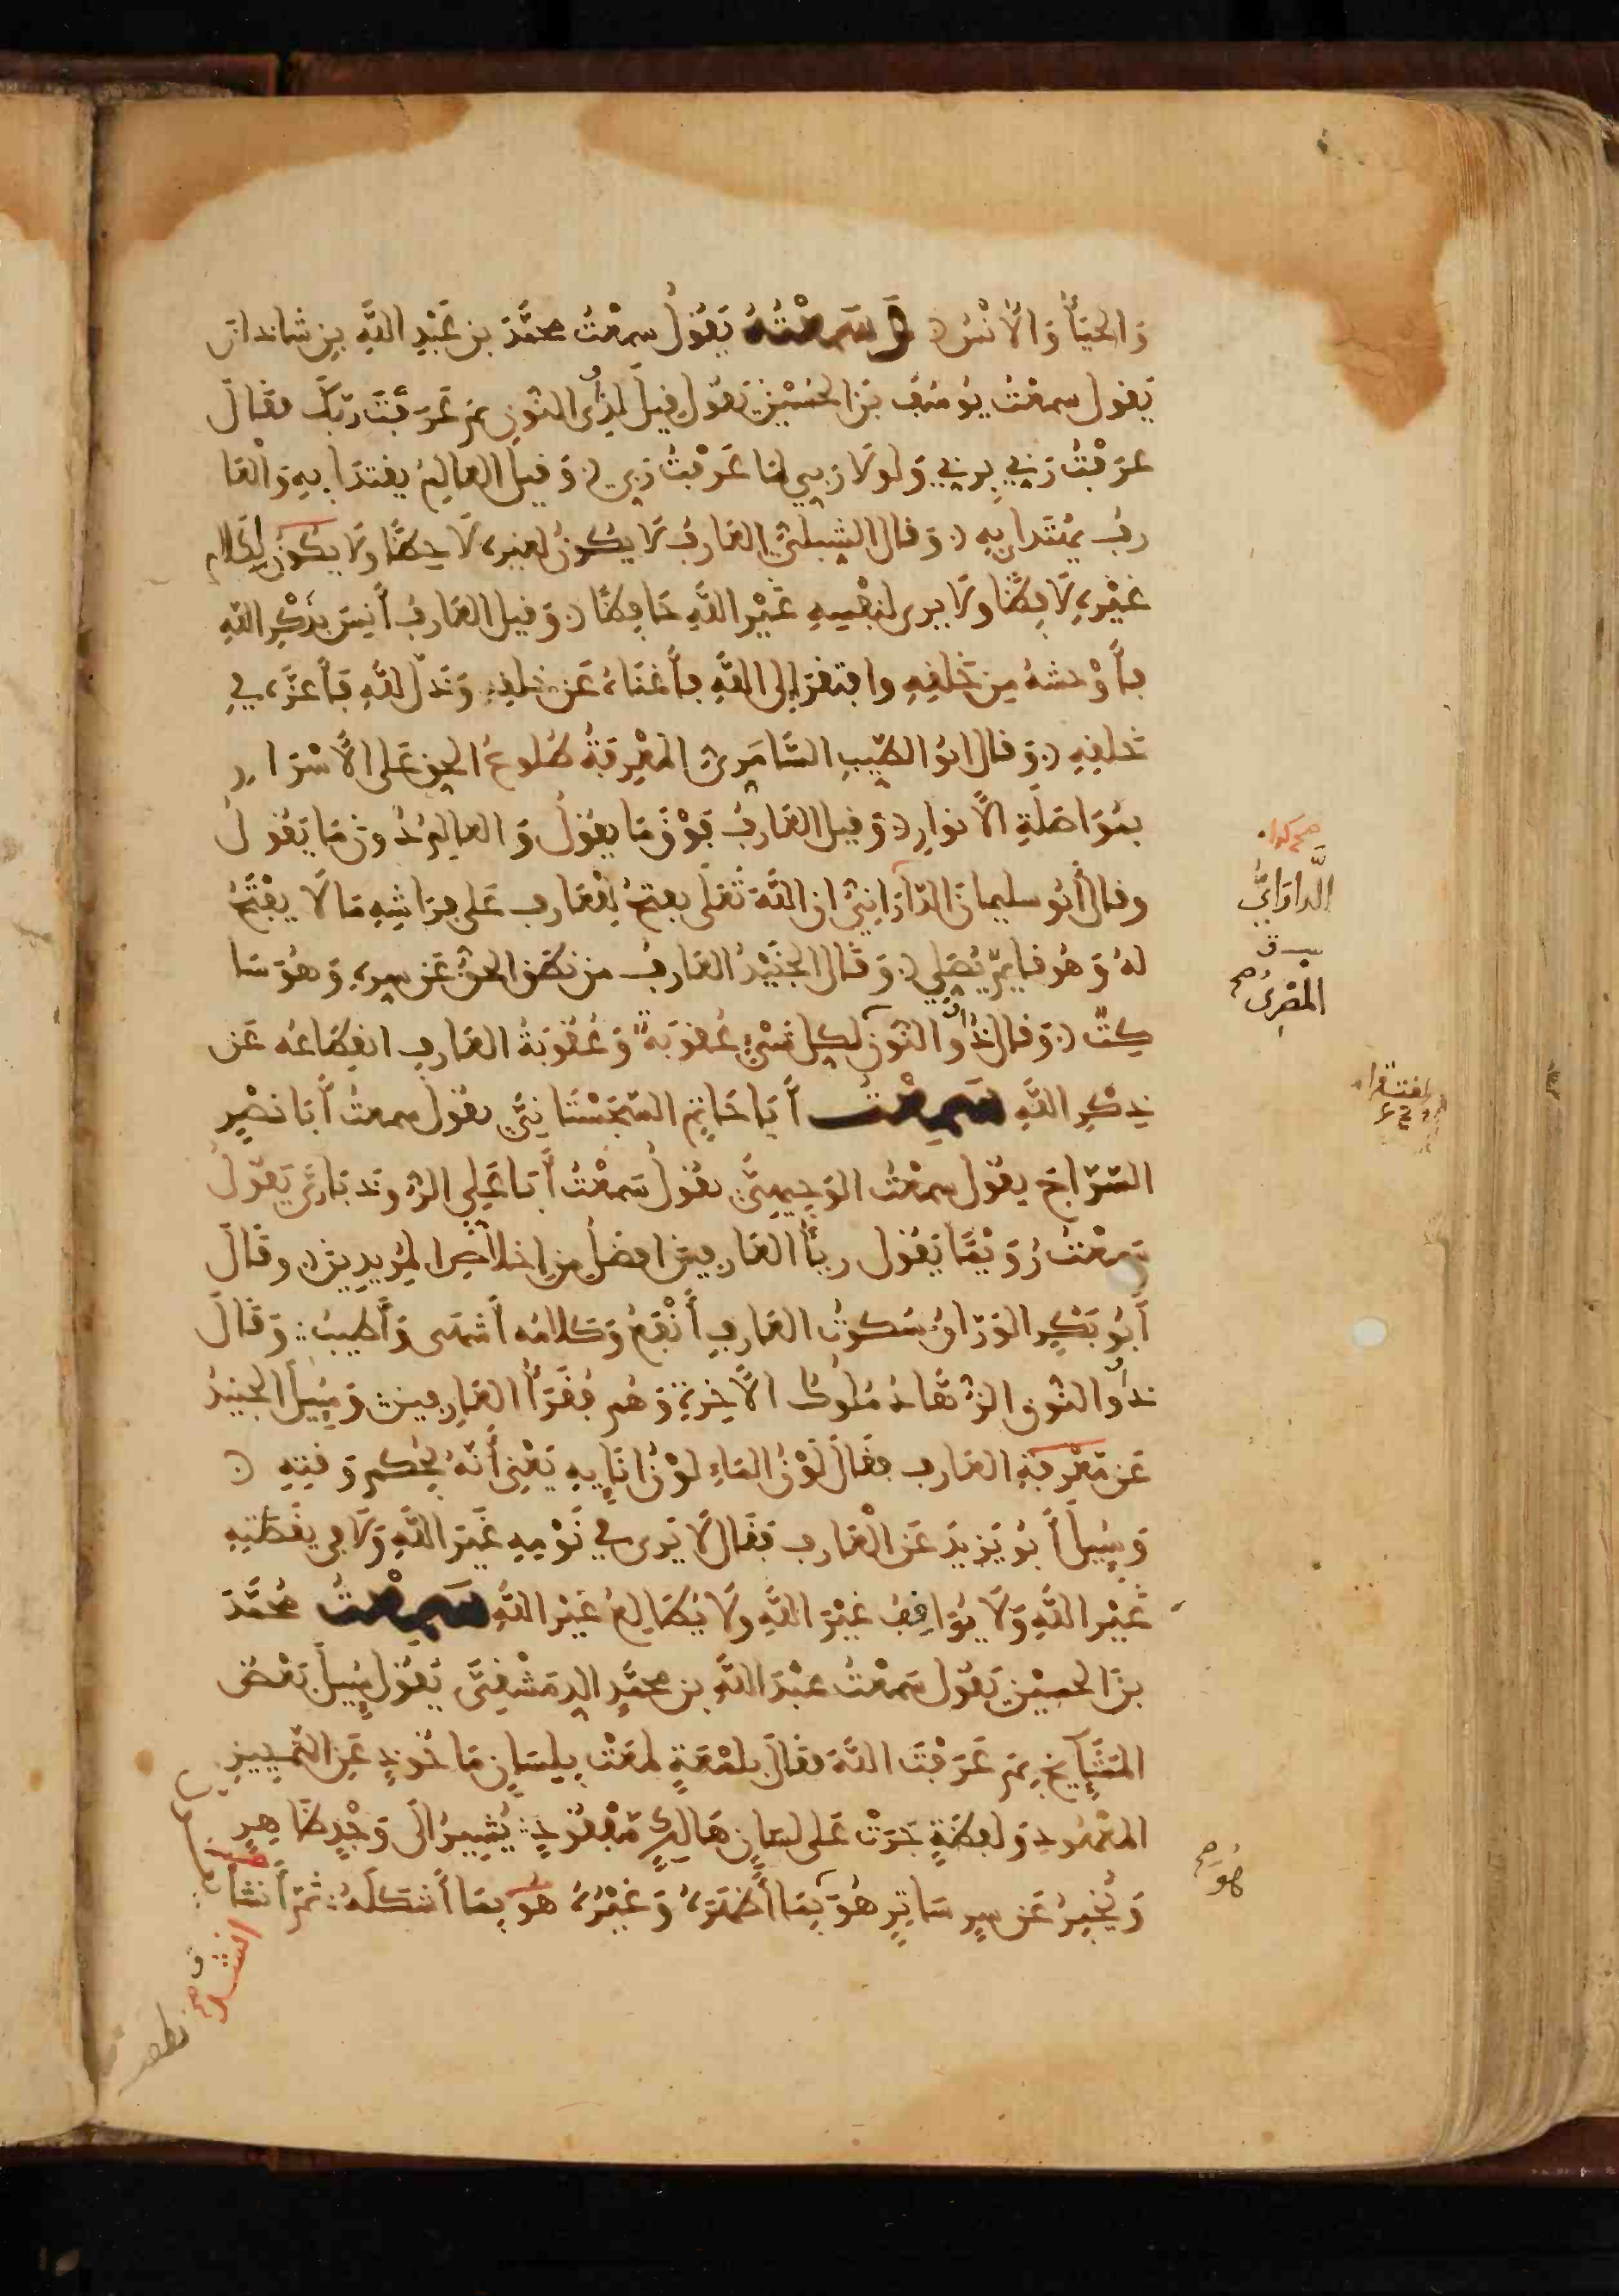 وَالحَيَاءُ وَالأُنْسُ وَسَمِعْتُهُ يَقُولُ سمعْتُ محمَّدَ بن عَبْدِ اللَّهِ بنِ شاذانَ
يَقول سمعتُ يُوسُفَ بنَ الحُسَيْنِ يَقُول قِيلَ لِذِي النُّونِ بِمَ عَرَفْتَ رَبَّكَ فقَالَ
عَرَفْتُ رَبِّي بِرَبِّي وَلولَا رَبِّي لمَا عَرَفْتُ رَبِّي وَقيلَ العالِمُ يقتدَا بِهِ وَالعَا
رِفُ يُهْتَدا بِهِ وَقال الشِّبليُّ العَارِفُ لَا يكُونُ لغيرِهِ لَاحِظًا ولَا يكُونُ لكَلام
غَيْرِهِ لَافِظًا ولَا يرى لنفْسِهِ غَيْرَ اللَّهِ حَافِظًا وَقيل العَارفُ أَنِسَ بِذِكْرِ اللَّهِ
فأَوْحشهُ مِن خَلقِهِ وافتقرَ إلى اللَّهِ فأَغنَاهُ عَن خلقِهِ وَذلَّ للَّهِ فَأَعزَّهُ فِي
خَلقِهِ وَقال ابُو الطيِّبِ السَّامَرِيُّ المَعْرِفَةُ طُلوعُ الحقِ عَلى الأَسْرَارِ
بمُوَاصَلَةِ الأَنوارِ وَقيل العَارفُ فَوْقَ مَا يقُولُ وَالعالِمُ دُونَ مَا يَقُولُ
وقال أَبُو سليمانَ الدَّارَانِيُّ ان اللَّهَ تَعَلى يفتحُ لِلْعَارِفِ عَلى فِرَاشِهِ مَا لَا يفْتَحُ
لهُ وَهُو قايمٌ يُصَلِي وَقَال الجُنَيْدُ العَارفُ من نطَقَ الحقُّ عَن سِرِهِ وَهُوَ سَا
كِتٌ وَقال ذُوا النُّونِ لِكل شَيْءٍ عُقوبَةٌ وَعُقوبَةُ العَارفِ انقِطَاعُه عَن
ذِكْرِ اللَّهِ سَمِعْتُ أَبَا حَاتِمٍ السِّجِسْتَانِيَّ يقُول سمعتُ أَبَا نَصْرٍ
السَّرَّاجَ يقُول سمعْتُ الوَجِيهِيَّ يقُولُ سَمعْتُ أَبَا عَلِي الرُّوذبَارِيَّ يَقُولُ
سَمِعْتُ رُوَيْمًا يَقُول رِيَاءُ العَارِفينَ افضلُ مِن إخلاصِ المُرِيدِينَ وقَالَ
أَبُو بَكْرٍ الوَرَّاقُ سُكوتُ العَارِفِ أَنْفَعُ وَكَلامُه أَشهَى وَأَطيبُ وَقَالَ
ذُوا النُّونِ الزُّهَّادُ مُلوكُ الآخِرَةِ وَهُم فُقَرَاءُ العَارِفينَ وَسُئِلَ الجنيدُ
عَن مَعْرِفَةِ العَارف فقَالَ لَوْنُ المَاءِ لَوْنُ إنَايِهِ يَعْني أَنَّهُ بحُكمِ وَقتِهِ
وَسُئِلَ أَبُو يَزيدَ عَن الْعَارِف فَقَال لَا يَرى في نَوْمِهِ غَيرَ اللَّهِ وَلَا فِي يقَظتِهِ
غَيْرَ اللَّهِ وَلَا يُوَافِقُ غَيْرَ اللَّهِ ولَا يُطَالِعُ غَيْرَ اللَّهِ سَمِعْتُ محُمَّدَ
بنَ الحسيْنِ يَقُول سَمعْتُ عَبْدَ اللَّهِ بن محمَّدٍ الدِمَشْقِيَّ يَقُول سُئِلَ بَعْضُ
المَشَايخِ بِمَ عَرَفْتَ اللَّهَ فقَالَ بلمْعَةٍ لمَعَتْ بِلِسَانِ مَاخُوذٍ عَنِ التَّمييزِ
المَعْهُودِ وَلفظَةٍ جَرَتْ عَلى لسَانِ هَالِكٍ مَفْقُودٍ يُشِيرُ الَى وَجْدٍ ظَاهِرٍ
وَيُخْبِرُ عَن سِرٍ سَاتِرٍ هُوَ بمَا أَظهَرَهُ وَغَيْرُهُ هُو بمَا أَشكَلَهُ ثمَّ أَنشأَ
الدارَانيُّ
المغربيُّ صح
هُوَ صح
انشد صح